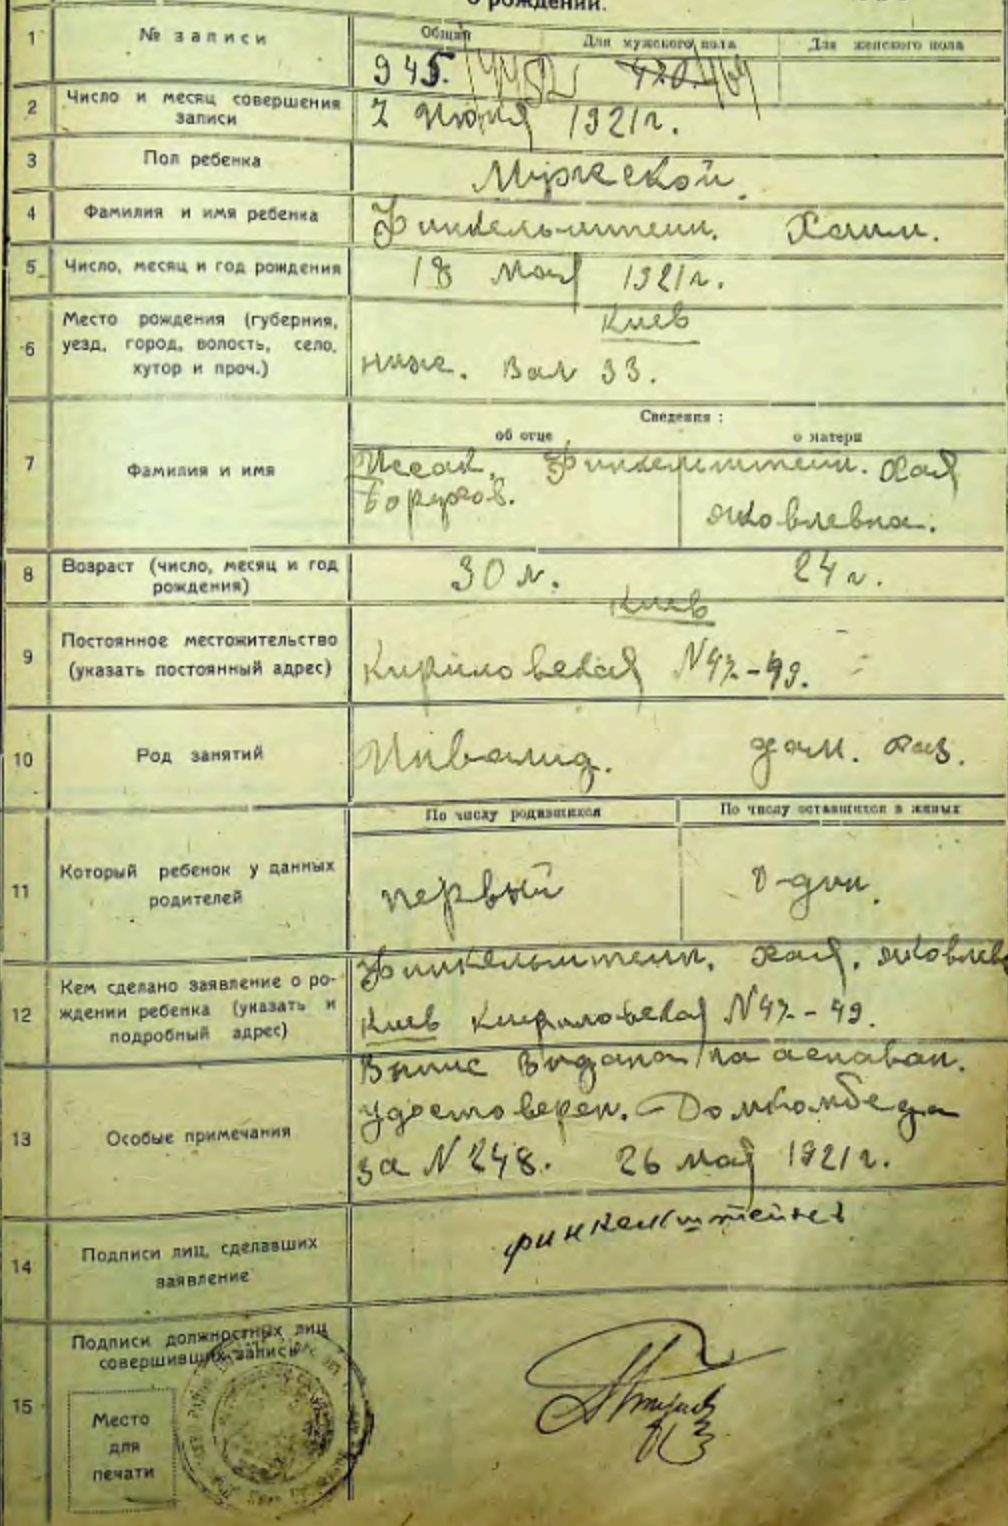 о рождении.
1 № записи Общий Для мужского пола Для женского пола
945. 1452 420. 464
2 Число и месяц совершения записи
2 Июня 1921 г.
3 Пол ребенка Мужеской.
4 Фамилия и имя ребенка Финкельштейн. Хаим.
5 Число, месяц и год рождения 18 Мая 1921 г.
6 Место рождения (губерния, уезд, город, волость, село, хутор и проч.)
Киев
ниже. Вал 33.
Сведения:
об отце о матери
7 Фамилия и имя
Иссак, Финкельштейн. Хая
Борухов. Яковлевна.
8 Возраст (число, месяц и год рождения) 30 л. 24 г.
9 Постоянное местожительство (указать постоянный адрес)
Киев
Кириловская N 47-49.
10 Род занятий Инвалид. дом. хаз.
По числу родившихся По числу оставшихся в живых
11 Который ребенок у данных родителей
первый один.
12 Кем сделано заявление о рождении ребенка (указать и подробный адрес)
Финкельштейн. Хая. Яковлев
Киев Кириловская N 47-49.
13 Особые примечания
Выдана на аснаван.
удостоверен. Домкомбеда
за N 248. 26 мая 1921 г.
14 Подписи лиц, сделавших заявление
15 Подписи должностных лиц совершивших запись
Место
для
печати